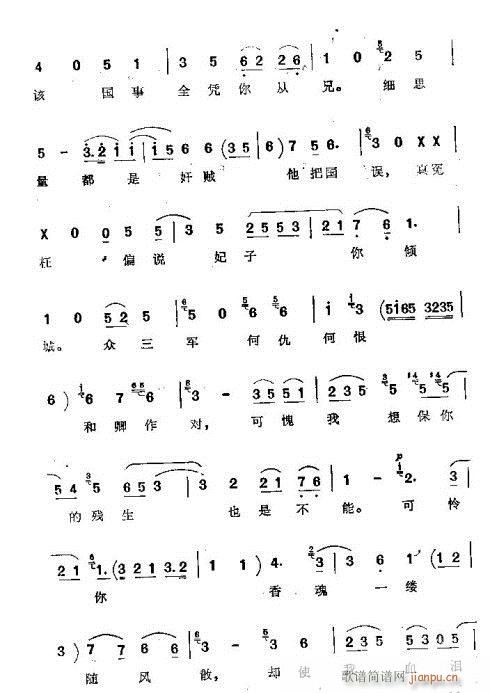 4 0 5 1 | 3 5 6 2 2 6 | 1 0 2 5 |
该 国事 全凭你从兄。细思
5 - 3. 2 i i | i 5 6 6 (3 5) | 6) 7 5 6. | 3 0 X X |
量都是奸贼 他把国误，真冤
X 0 0 5 | 3 5 2 5 5 3 | 2 1 7 6 1. |
枉 偏说妃子 你倾
1 0 5 2 5 | 5 0 6 6 | i 3 (5i65 3235 |
城。众三军 何仇何恨
6) 6 7 6 | 3 - 3 5 5 1 | 2 3 5 5 5 |
和卿作对，可愧我想保你
5 4 5 6 5 3 | 3 2 2 1 7 6 | 1 - 2. 3 |
的残生 也是不能。可怜
2 1 1. (3 | 2 3 2 1 3. 2 | 1 1) 4. 3 | 2 (1 2 |
你 香魂一缕
3) 7 7 6 6 | 3 - 0 2 3 | 5 5 3 0 5 |
随风散，却使我血泪
歌谱简谱网 jianpu.cn